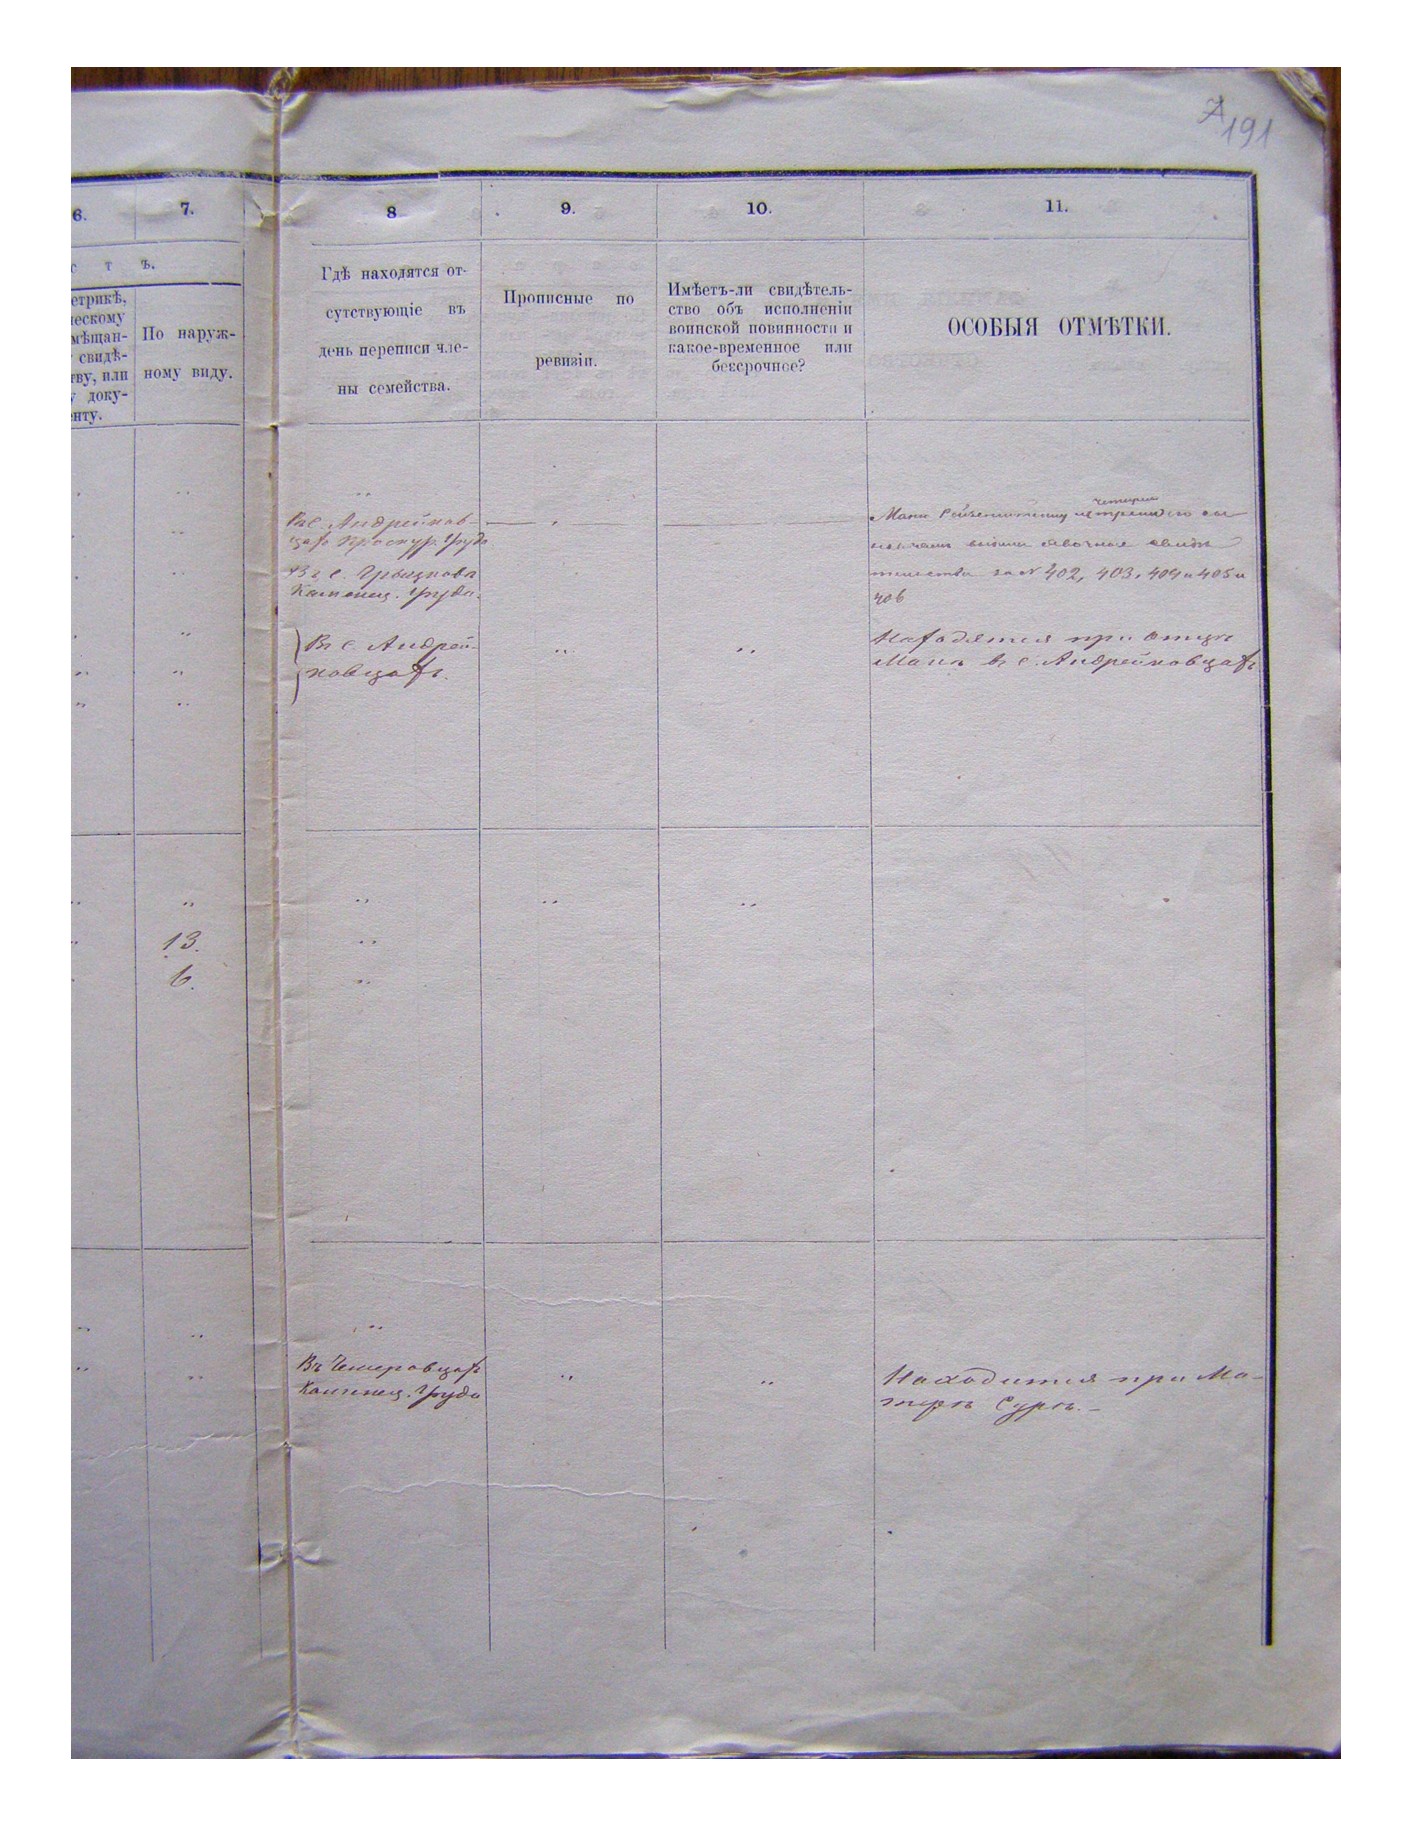 191
6.
7.
8
9.
10.
11.
с т ъ.
етрикѣ,
ческому
мѣщан-
свидѣ-
тву, или
у доку-
енту.
По наруж-
ному виду.
Гдѣ находятся от-
сутствующіе въ
день переписи чле-
ны семейства.
Прописные по
ревизіи.
Имѣетъ-ли свидѣтель-
ство объ исполненіи
воинской повинности и
какое-временное или
бексрочнсе?
ОСОБЫЯ ОТМѢТКИ.
Въ с. Андрейков-
цахъ Проскур. Уѣзда
Въ с.
Каменец. Уѣзда.
четырем
Мани
выданы явочные свидѣ
тельства за № 402, 403, 404 и 405 и
406
Въ с. Андрей-
ковцахъ.
Находятся при отцѣ
Мани въ с. Андрейковцахъ
13.
6.
Въ Чемеровцахъ
Каменец. Уѣзда
Находится при Ма-
тери Суры.-